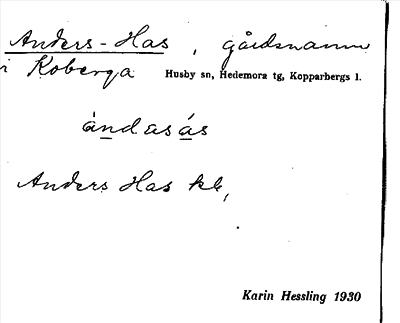 Anders-Has, gårdsnamn
i Koberga Husby sn, Hedemora tg, Kopparbergs l.
àndæsás
Anders Has kk,
Karin Hessling 1930